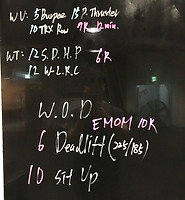 WU: 5 Burpee 15 P. Thruster
10 TRX Row 7R 12 min.
WT: 12 S.D.H.P 6R
12 W.L.R.C
W.O.D
EMOM 10R
6 Deadlift (225/185)
10 Sit Up